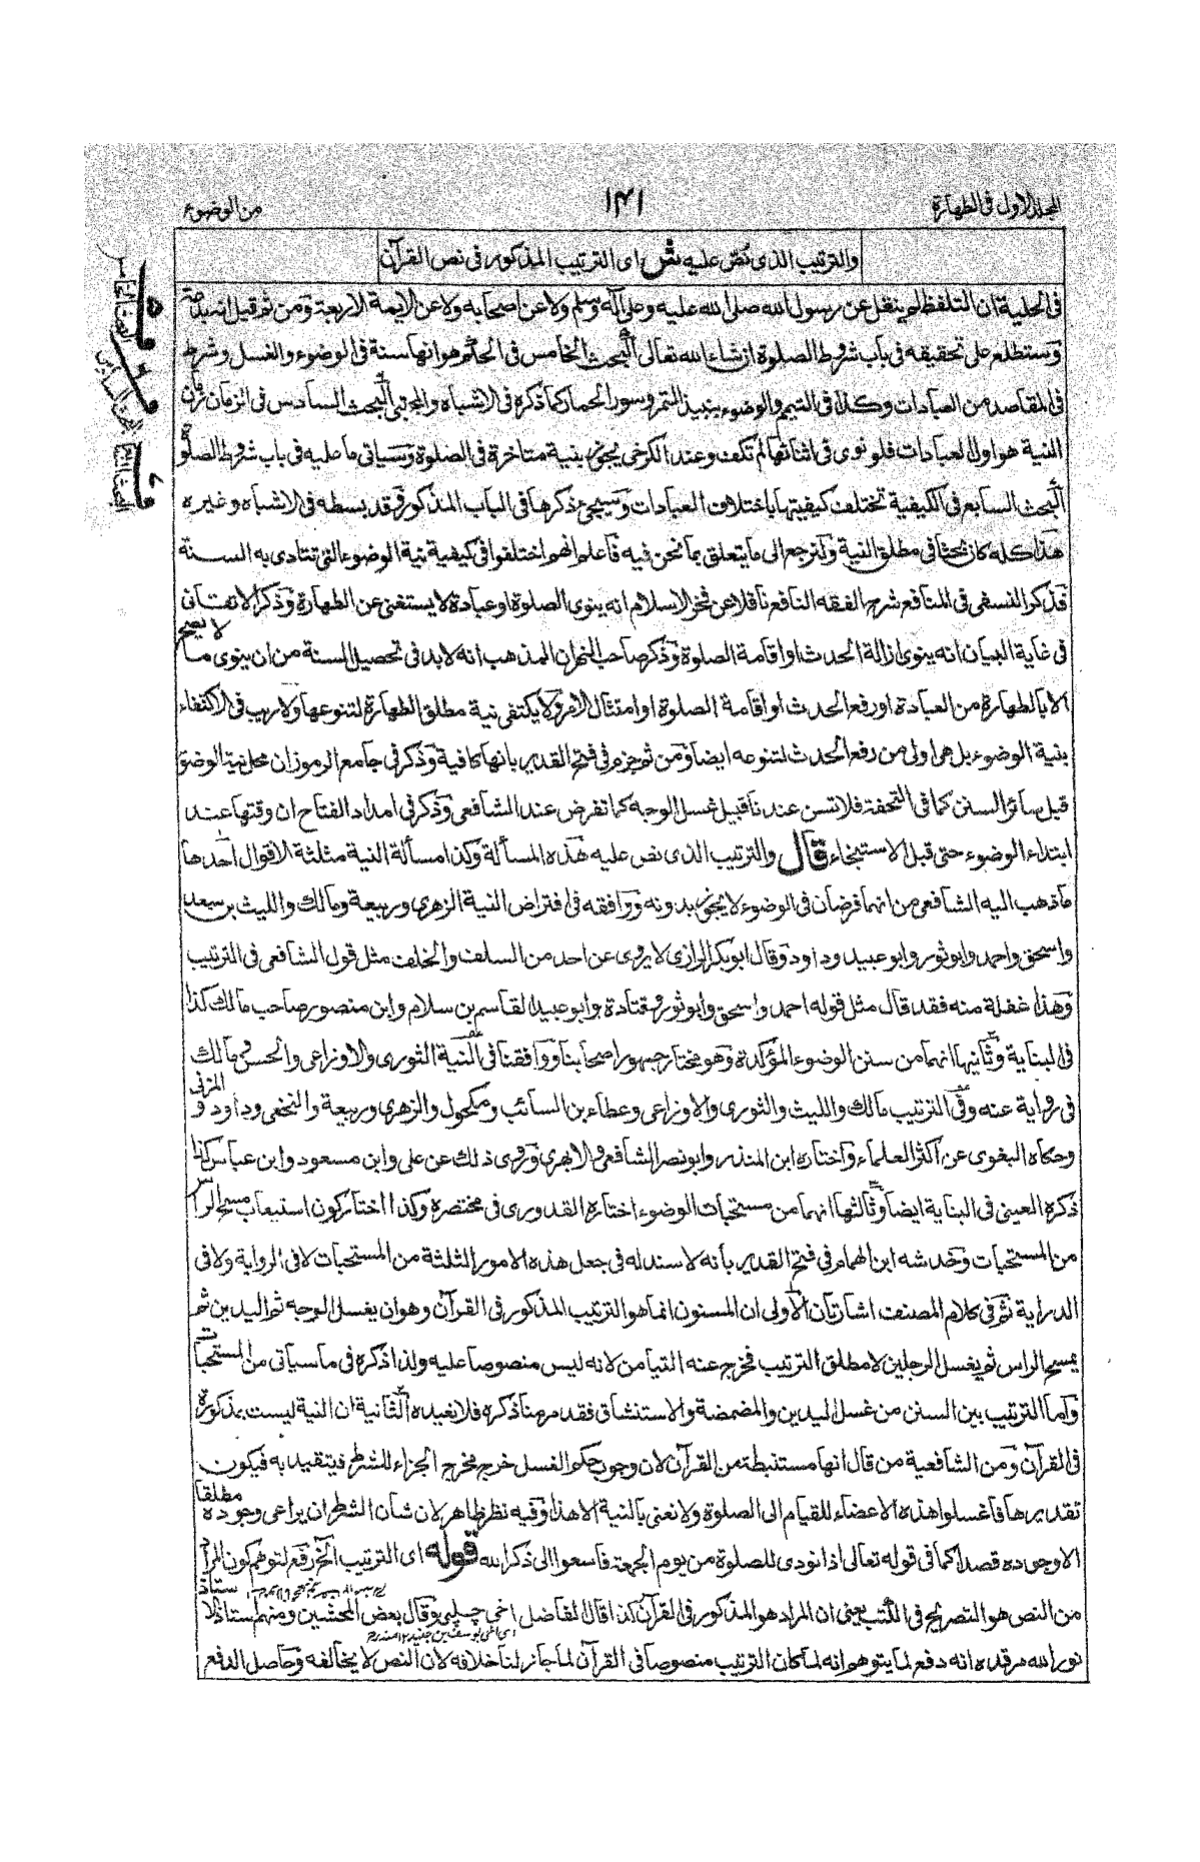 المجلد الاول فی الطهارة
۱۴۱
من الوضوء
والترتیب الذی نص علیه ش ای الترتیب المذکور فی نص القرآن
فی الحلیة ان التلفظ لم ینقل عن رسول الله صلی الله علیه وعلی آله وسلم ولا عن اصحابه ولا عن الایمة الاربعة ومن ثم قیل انه بدعة
وستطلع علی تحقیقه فی باب شروط الصلوة ان شاء الله تعالی البحث الخامس فی الحکم هو انها سنة فی الوضوء والغسل وشرط
فی المقاصد من العبادات وکذا فی التیمم والوضوء بنبیذ التمر وسور الحمار کما ذکره فی الاشباه والمجتبی البحث السادس فی الزمان زمان
النیة هو اول العبادات فلو نوی فی اثنائها لم تکف وعند الکرخی یجوز بنیة متاخرة فی الصلوة وسیاتی ما علیه فی باب شروط الصلوة
البحث السابع فی الکیفیة تختلف کیفیتها باختلاف العبادات وسیجئ ذکرها فی الباب المذکور وقد بسطه فی الاشباه وغیره
هذا کله کان بحثا فی مطلق النیة ولنرجع الی ما یتعلق بما نحن فیه فاعلم انهم اختلفوا فی کیفیة نیة الوضوء التی تتادی به السنة
فذکر النسفی فی المنافع شرح الفقه النافع ناقلا عن فخر الاسلام انه ینوی الصلوة او عبادة لا یستغنی عن الطهارة وذکر الاتقانی
فی غایة البیان انه ینوی ازالة الحدث او اقامة الصلوة وذکر صاحب النهر ان المذهب انه لابد فی تحصیل السنة من ان ینوی ما لا یصح
الا بالطهارة من العبادة او رفع الحدث او اقامة الصلوة او امتثال الامر ولا یکتفی نیة مطلق الطهارة لتنوعها ولا ریب فی الاکتفاء
بنیة الوضوء بل هی اولی من رفع الحدث لتنوعه ایضا ومن ثم جزم فی فتح القدیر بانها کافیة وذکر فی جامع الرموز ان محل نیة الوضوء
قبل سائر السنن کما فی التحفة فلا تسن عندنا قبیل غسل الوجه کما تفرض عند الشافعی وذکر فی امداد الفتاح ان وقتها عند
ابتداء الوضوء حتی قبل الاستنجاء قال والترتیب الذی نص علیه هذه المسألة وکذا مسألة النیة مثلثة الاقوال احدها
ما ذهب الیه الشافعی من انهما فرضان فی الوضوء لا یجوز بدونه ووافقه فی افتراض النیة الزهری وربیعة ومالک واللیث بن سعد
واسحق واحمد وابو ثور وابو عبید وداود وقال ابو بکر الرازی لا یروی عن احد من السلف والخلف مثل قول الشافعی فی الترتیب
وهذا غفلة منه فقد قال مثل قوله احمد واسحق وابو ثور وقتادة وابو عبید القاسم بن سلام وابن منصور صاحب مالک کذا
فی البنایة وثانیها انهما من سنن الوضوء المؤکدة وهو مختار جمهور اصحابنا ووافقنا فی النیة الثوری والاوزاعی والحسن ومالک
فی روایة عنه وفی الترتیب مالک واللیث والثوری والاوزاعی وعطاء بن السائب ومکحول والزهری وربیعة والنخعی وداود والمزنی
وحکاه البغوی عن اکثر العلماء واختاره ابن المنذر وابو نصر الشافعی والابهری وروی ذلک عن علی وابن مسعود وابن عباس کذا
ذکره العینی فی البنایة ایضا وثالثها انهما من مستحبات الوضوء اختاره القدوری فی مختصره وکذا اختار کون استیعاب مسح الراس
من المستحبات وخدشه ابن الهمام فی فتح القدیر بانه لا سند له فی جعل هذه الامور الثلثة من المستحبات لا فی الروایة ولا فی
الدرایة ثم فی کلام المصنف اشارتان الاولی ان المسنون انما هو الترتیب المذکور فی القرآن وهو ان یغسل الوجه ثم الیدین ثم
یمسح الراس ثم یغسل الرجلین لا مطلق الترتیب فخرج عنه التیامن لانه لیس منصوصا علیه ولذا ذکره فی ما سیاتی من المستحبات
واما الترتیب بین السنن من غسل الیدین والمضمضة والاستنشاق فقد مر منا ذکره فلا نعیده الثانیة ان النیة لیست بمذکورة
فی القرآن ومن الشافعیة من قال انها مستنبطة من القرآن لان وجوب حکم الغسل خرج مخرج الجزاء للشرط فیتقید به فیکون
تقدیرها فاغسلوا هذه الاعضاء للقیام الی الصلوة ولا نعنی بالنیة الا هذا وفیه نظر ظاهر لان شان الشرط ان یراعی وجوده مطلقا
الا وجوده قصدا کما فی قوله تعالی اذا نودی للصلوة من یوم الجمعة فاسعوا الی ذکر الله قوله ای الترتیب الخ رفع لتوهم کون المراد
من النص هو التصریح فی الکتب یعنی ان المراد هو المذکور فی القرآن کذا قال الفاضل اخی چلپی وقال بعض المحشین ومنهم استاذ الاستاذ
نور الله مرقده انه دفع لما یتوهم انه لما کان الترتیب منصوصا فی القرآن لما جاز لنا خلافه لان النص لا یخالفه وحاصل الدفع